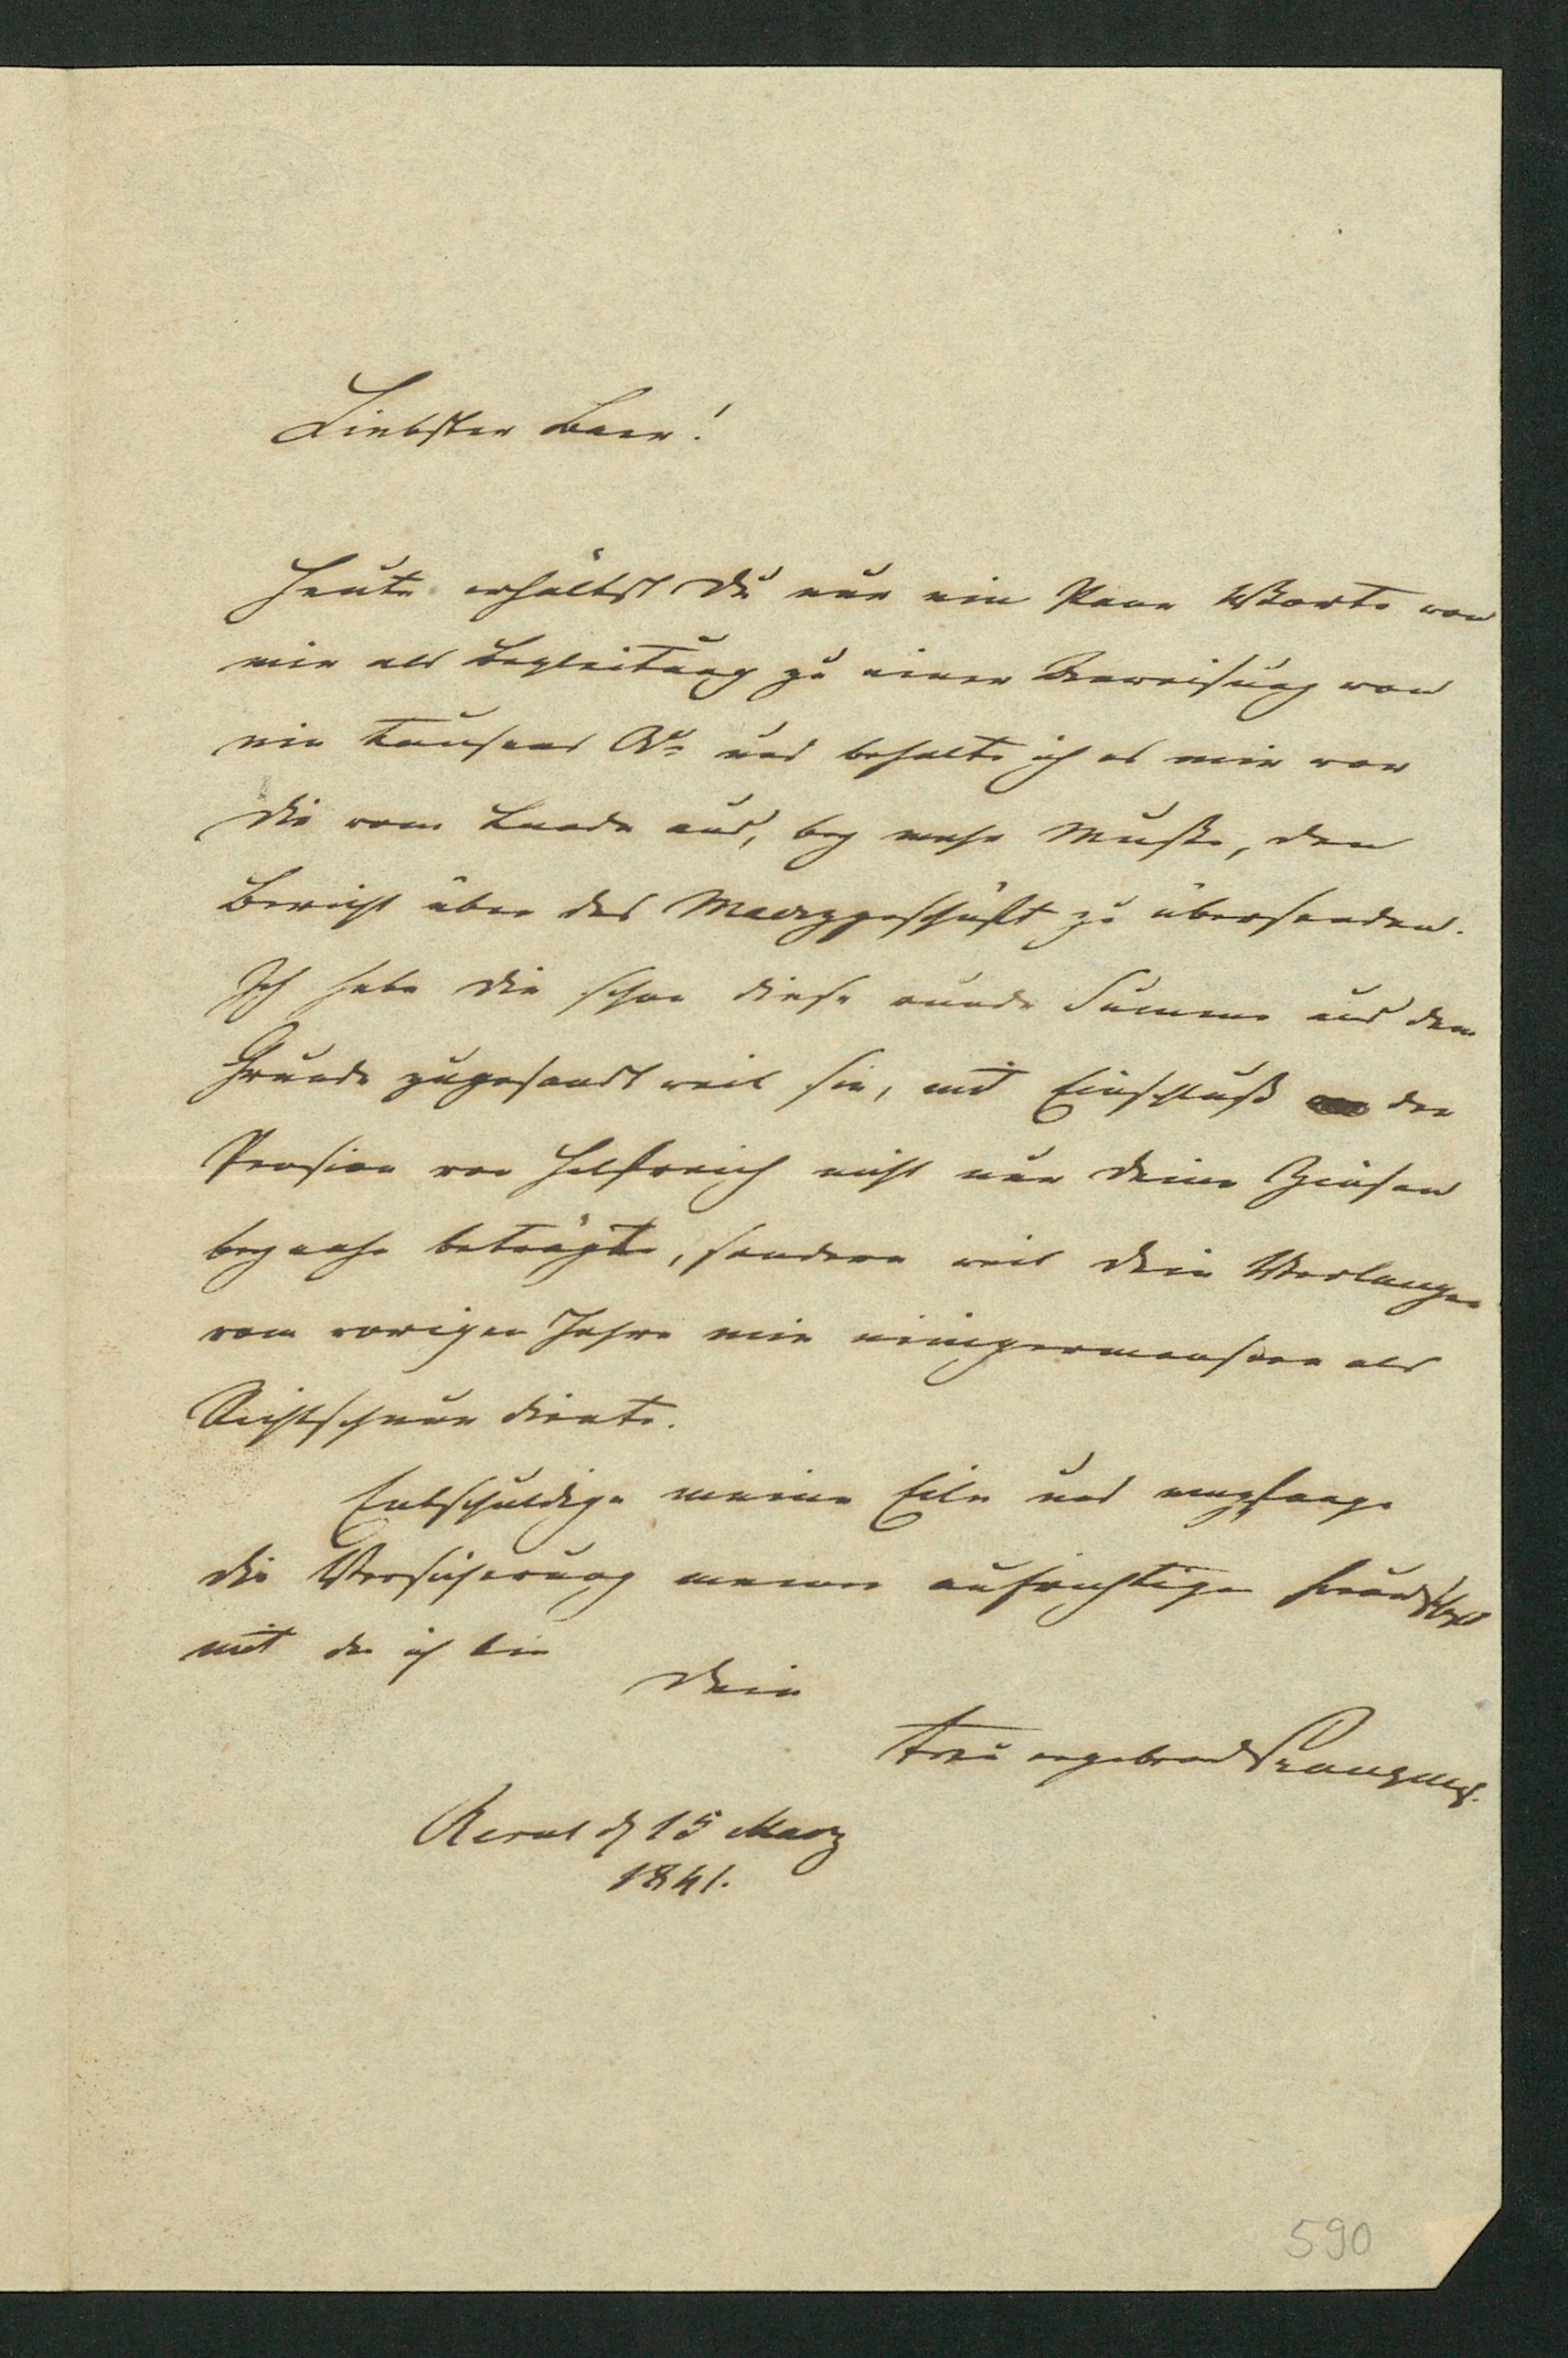 Liebster Baer!
Heute erhältst Du nur ein Paar Worte von
mir als Begleitung zu einer Anweisung von
ein tausend Ro und behalte ich es mir vor
Dir vom Lande aus, bey mehr Muße, den
Bericht über das Maerzgeschäft zu übersenden.
Ich habe Dir schon diese runde Summe aus dem
Grunde zugesandt weil sie, mit Einschluß der
Pension von Helffreich nicht nur Deine Zinsen
beynahe beträgt, sondern weil Dein Verlangen
vom vorigen Jahre mir einigermaassen als
Richtschnur diente.
Entschuldige meine Eile und empfange
die Versicherung meiner aufrichtigen Freundschaft
mit der ich bin
Dein
treu ergebener
Reval d 15 Maerz
1841.
590